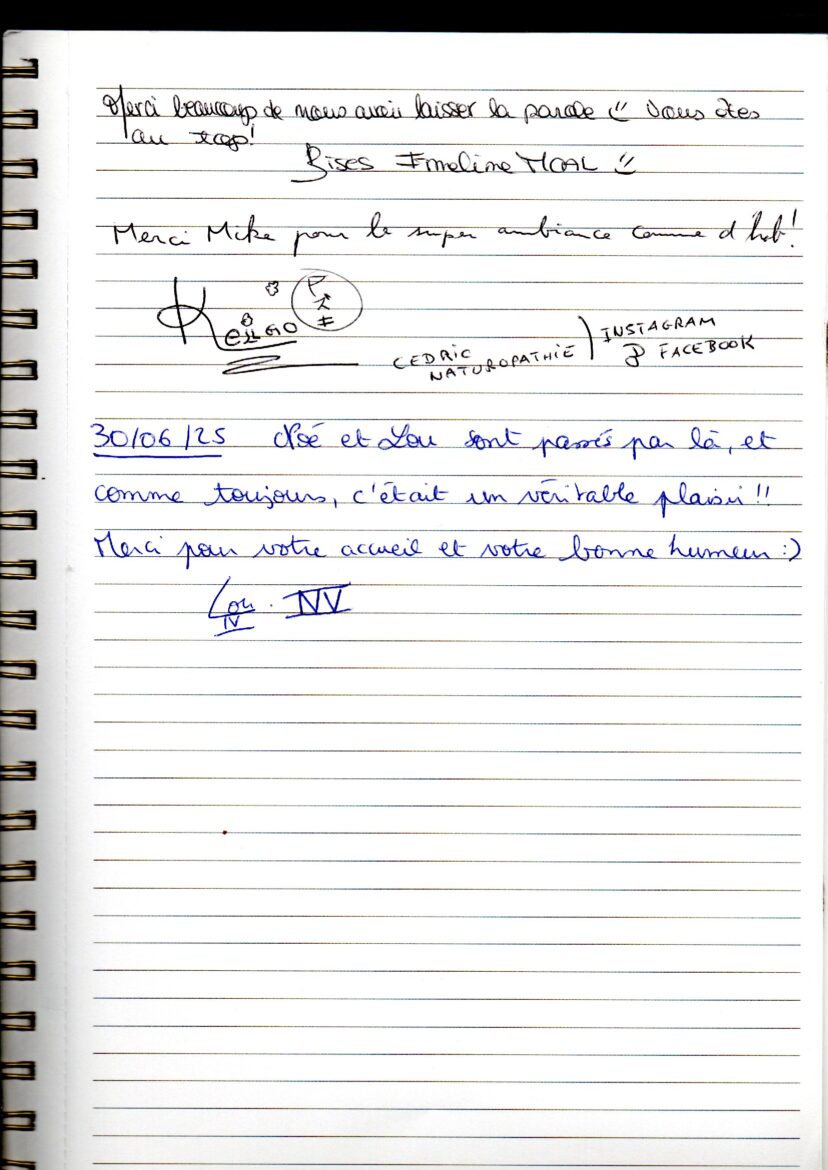 Merci beaucoup de nous avoir laisser la parole Vous êtes
au top!
Bises Emeline MOAL
Merci Mike pour le super ambiance comme d'hab!
CEDRIC
NATUROPATHIE
INSTAGRAM
FACEBOOK
30/06/25 Noé et Lou sont passés par là, et
comme toujours, c'était un véritable plaisir!!
Merci pour votre accueil et votre bonne humeur :)
Lou NV
IV